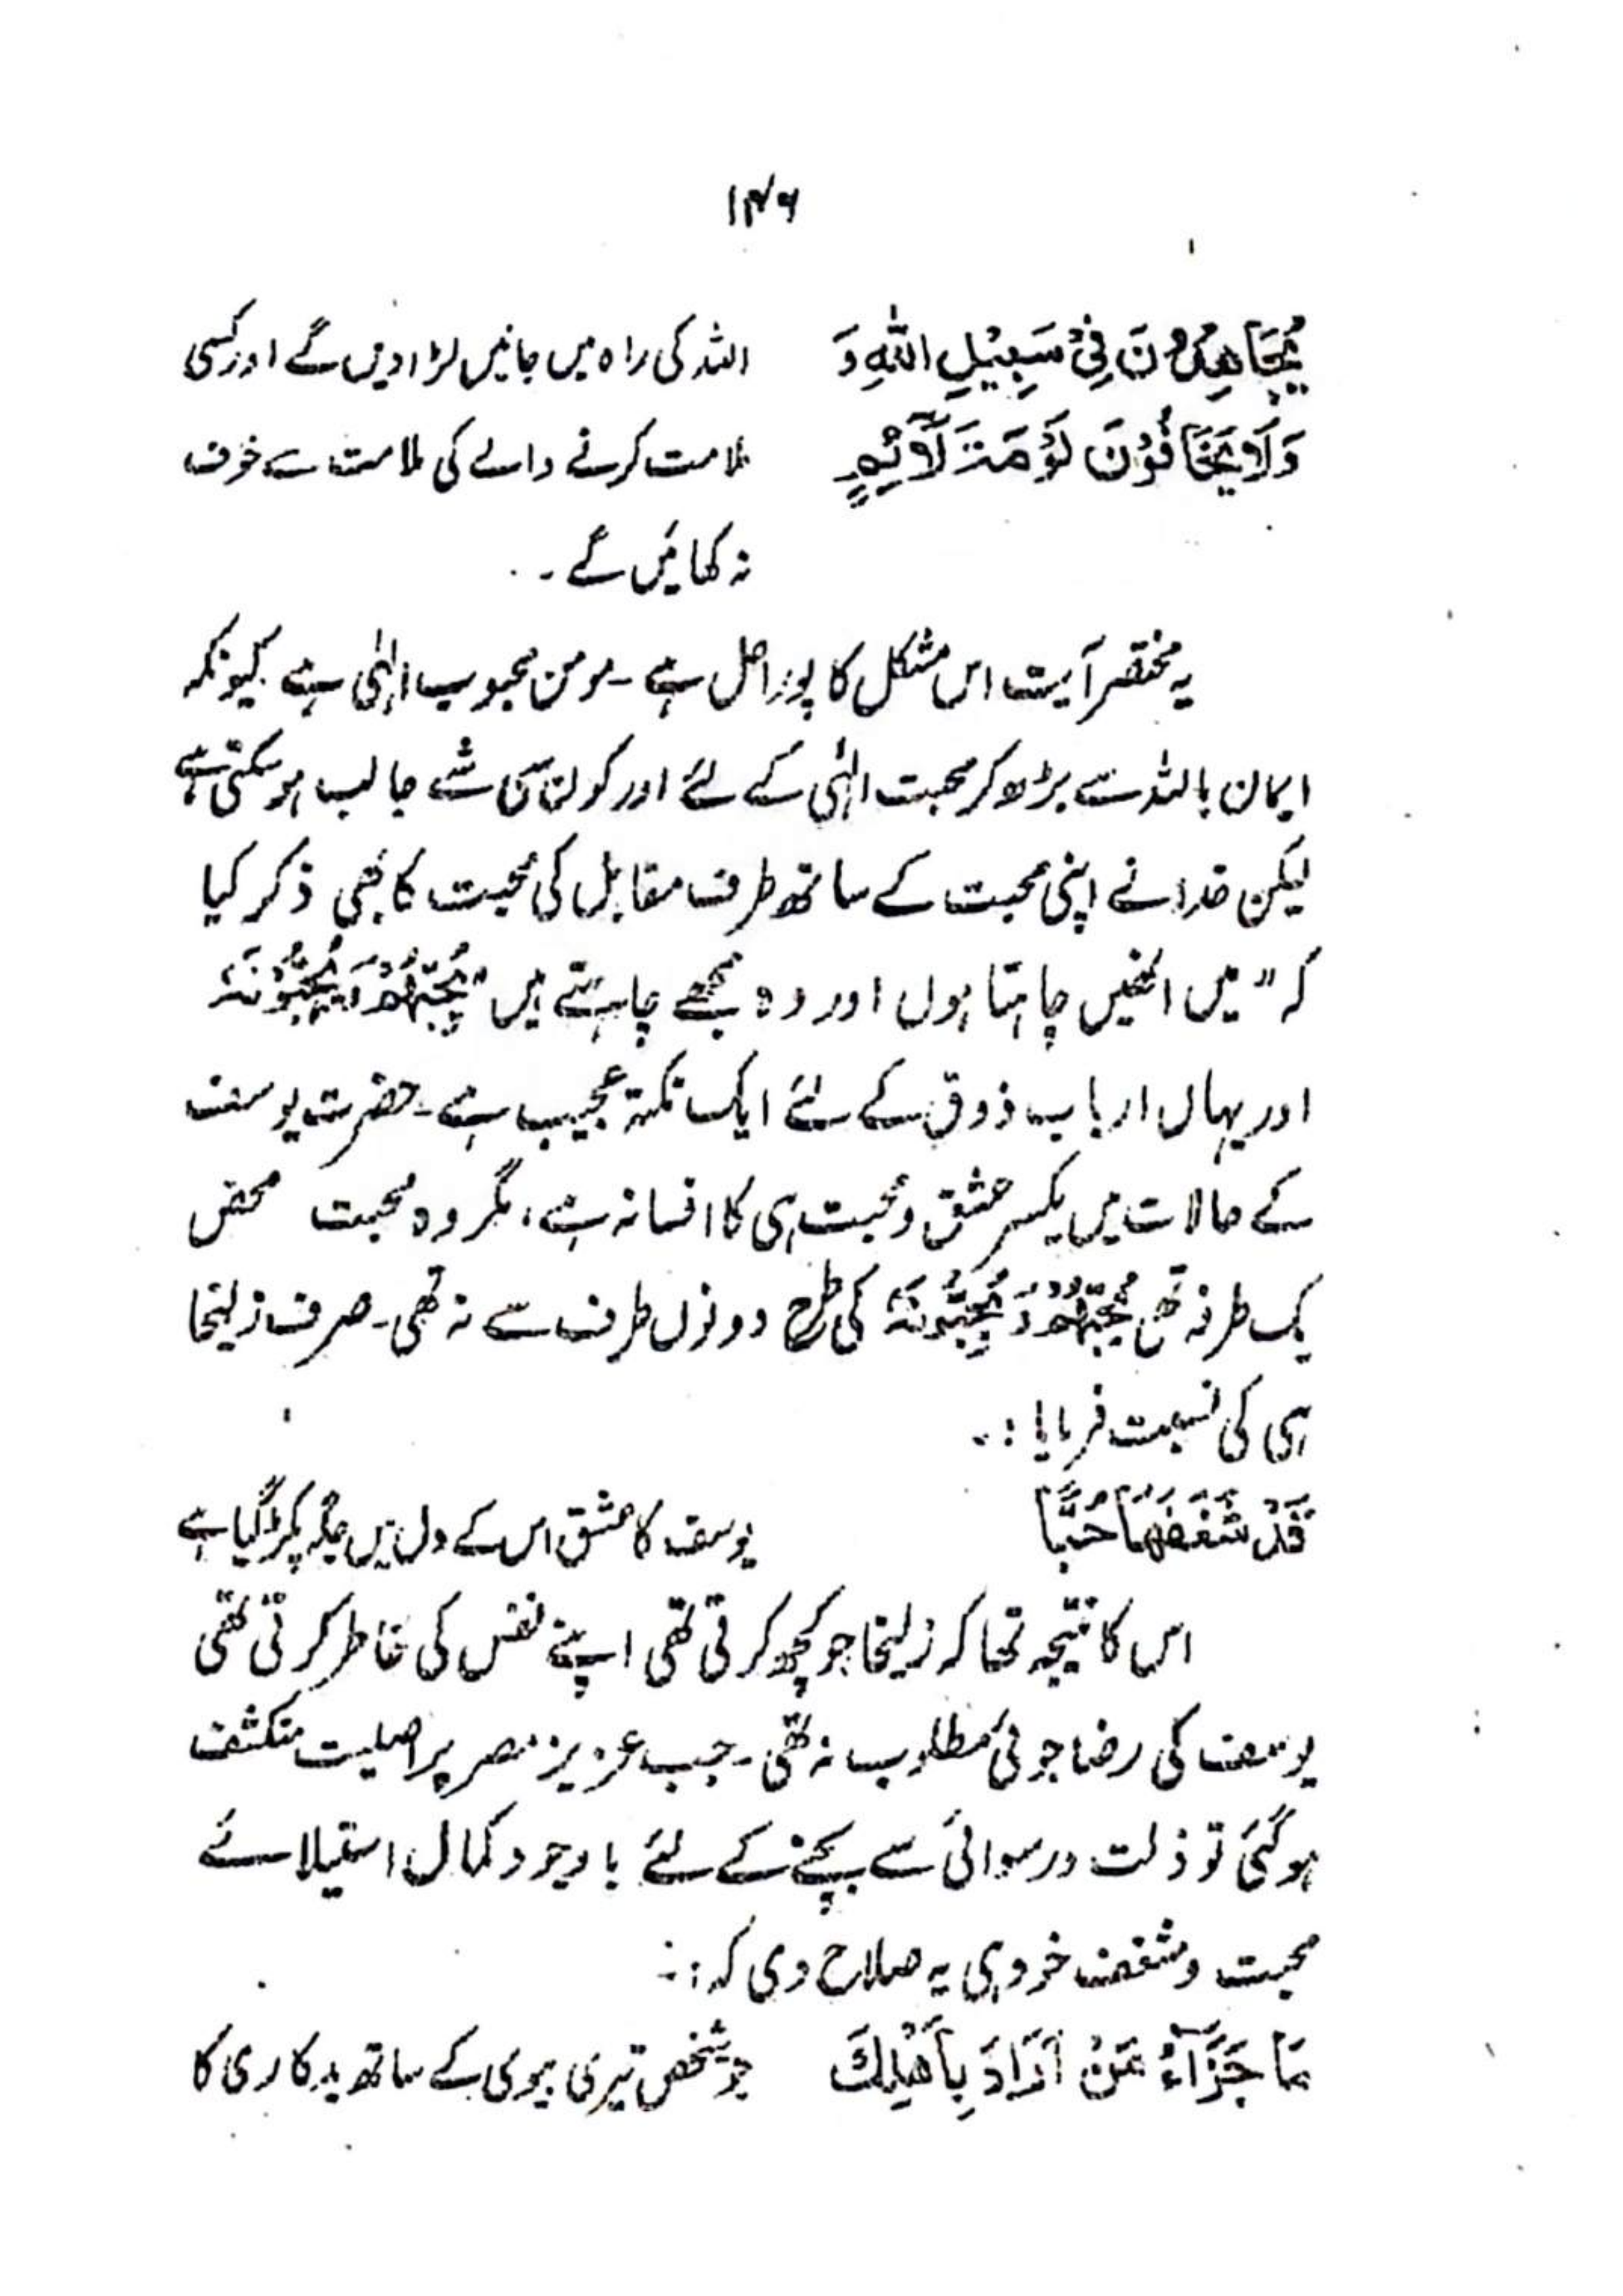 ۱۴۶
يُجَاهِدُوْنَ فِیْ سَبِيْلِ اللّٰهِ وَ اللہ کی راہ میں جانیں لڑا دیں گے اور کسی
وَلَا يَخَافُوْنَ لَوْمَةَ لَآئِمٍ ملامت کرنے والے کی ملامت سے خوف
نہ کھائیں گے ۔
یہ مختصر آیت اس مشکل کا پورا حل ہے ۔ مومن محبوب الٰہی ہے کیونکہ
ایمان باللہ سے بڑھ کر محبت الٰہی کے لئے اور کون سی شے جالب ہو سکتی ہے
لیکن خدا نے اپنی محبت کے ساتھ طرف مقابل کی محبت کا بھی ذکر کیا
کہ "میں انھیں چاہتا ہوں اور وہ مجھے چاہتے ہیں" يُحِبُّهُمْ وَيُحِبُّوْنَهٗ
اور یہاں ارباب ذوق کے لئے ایک نکتۂ عجیب ہے ۔ حضرت یوسف
کے حالات میں یکسر عشق و محبت ہی کا افسانہ ہے، مگر وہ محبت محض
یک طرفہ تھی يُحِبُّهُمْ وَ يُحِبُّوْنَهٗ کی طرح دونوں طرف سے نہ تھی ۔ صرف زلیخا
ہی کی نسبت فرمایا :۔
قَدْ شَغَفَهَا حُبًّا یوسف کا عشق اس کے دل میں جگہ پکڑ گیا ہے
اس کا نتیجہ تھا کہ زلیخا جو کچھ کرتی تھی اپنے نفس کی خاطر کرتی تھی
یوسف کی رضا جوئی مطلوب نہ تھی ۔ جب عزیز مصر پر اصلیت منکشف
ہوگئی تو ذلت و رسوائی سے بچنے کے لئے باوجود کمال استیلائے
محبت و شغف خود ہی یہ صلاح دی کہ :۔
مَا جَزَآءُ مَنْ اَرَادَ بِاَهْلِكَ جو شخص تیری بیوی کے ساتھ بدکاری کا